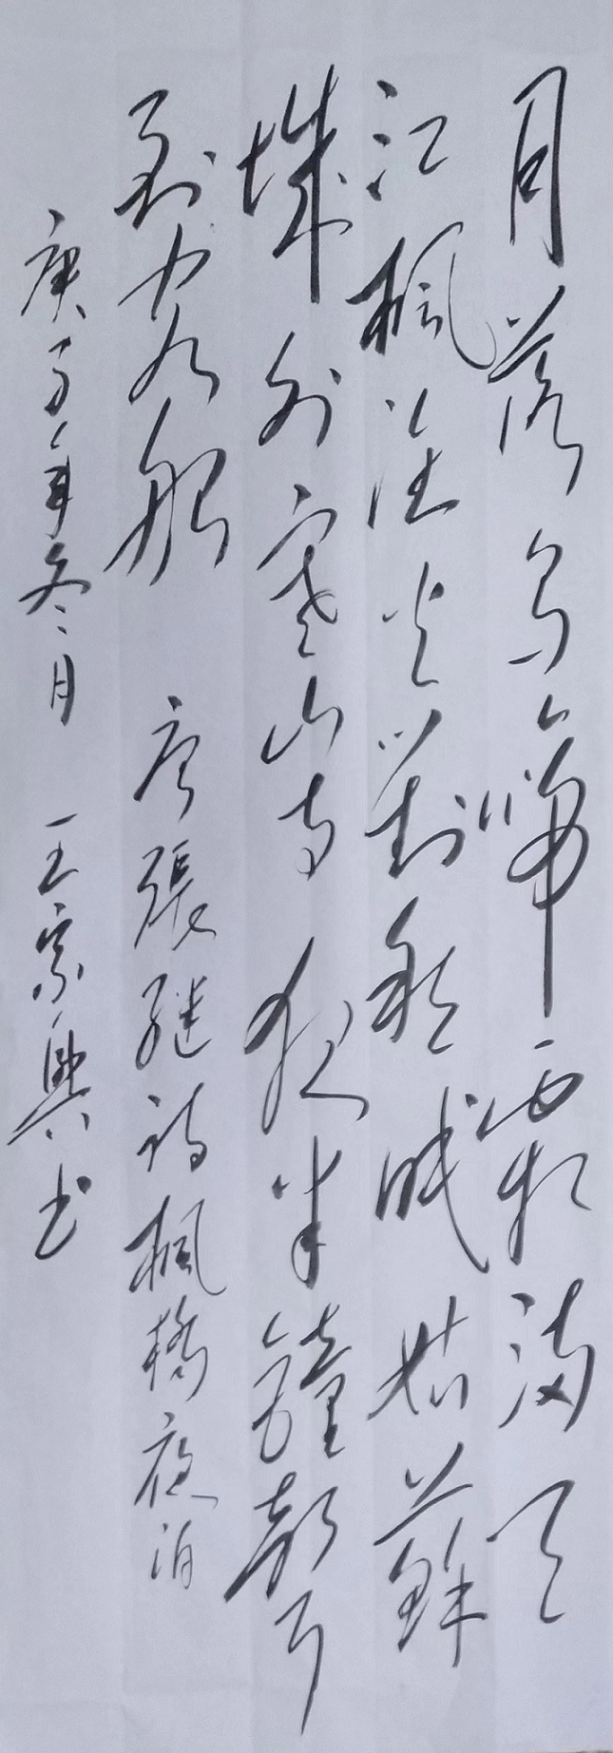 月落烏啼霜滿天
江楓漁火對愁眠姑蘇
城外寒山寺夜半鐘聲
到客船 唐張继诗楓橋夜泊
庚子年冬月 王宗興书